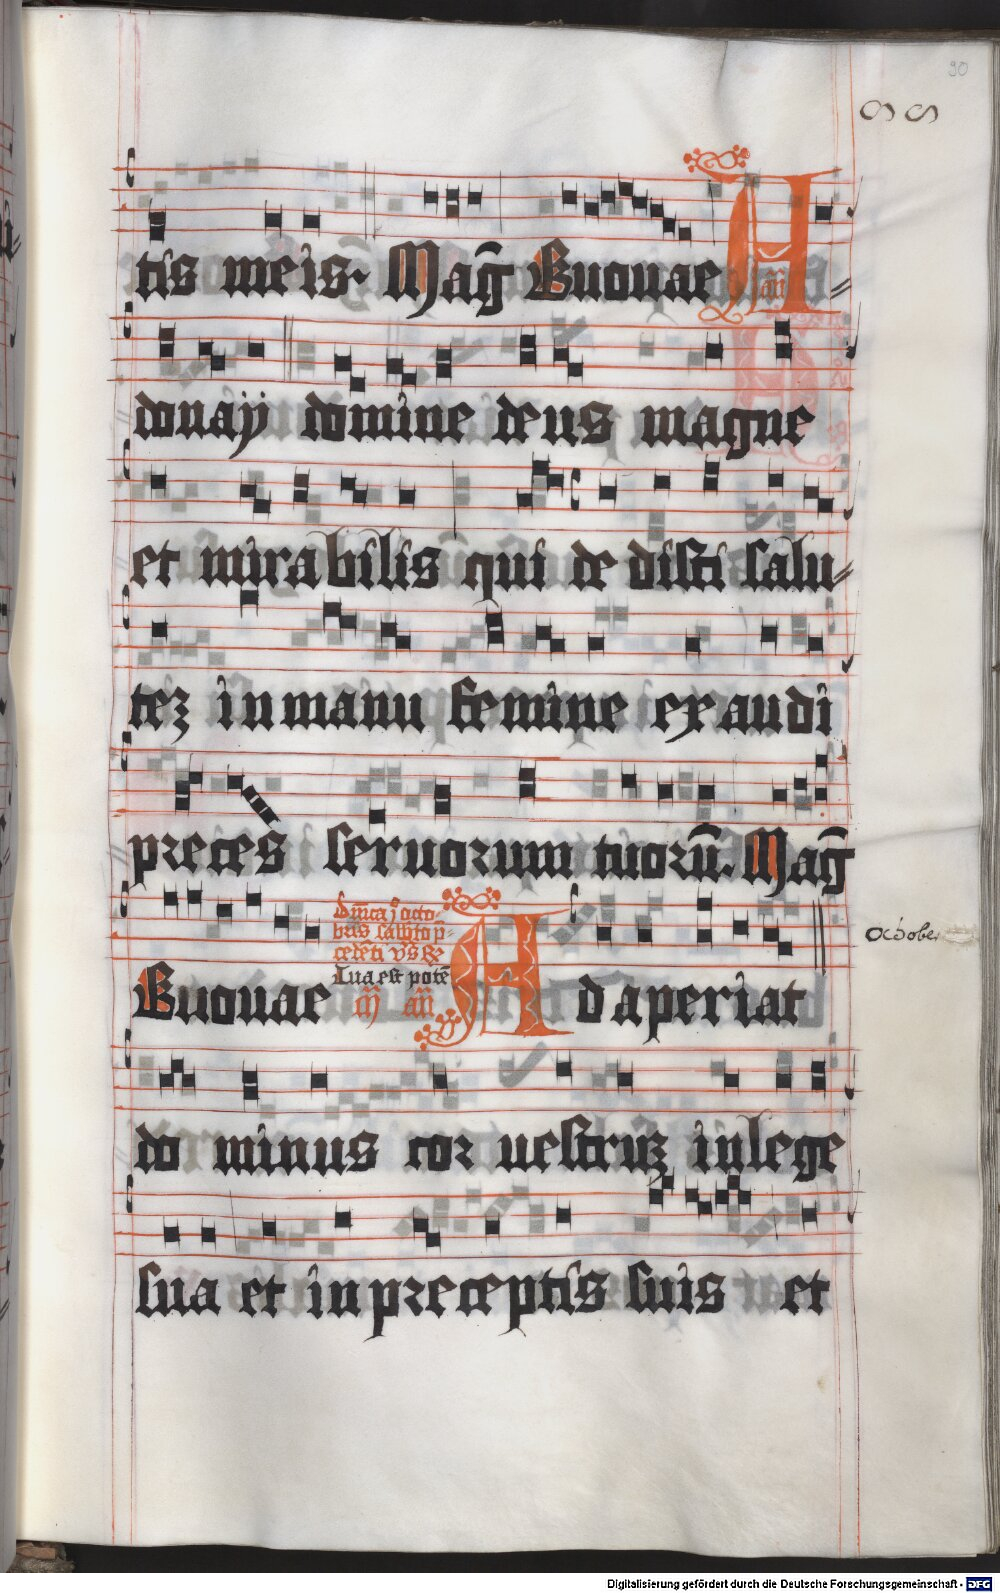 90
tis meis. Mag̅ Euouae A an̅
donaӱ domine deus magne
et mirabilis qui dedisti salu⸗
teȝ in manu femine exaudi
preces seruorum tuoru̅. Mag̅
Dn̅ica j octo⸗
October
Tua est pote̅
Euouae m̅ an̅ Ad aperiat
dominus cor uestruȝ in lege
sua et in preceptis suis et
Digitalisierung gefördert durch die Deutsche Forschungsgemeinschaft - DFG